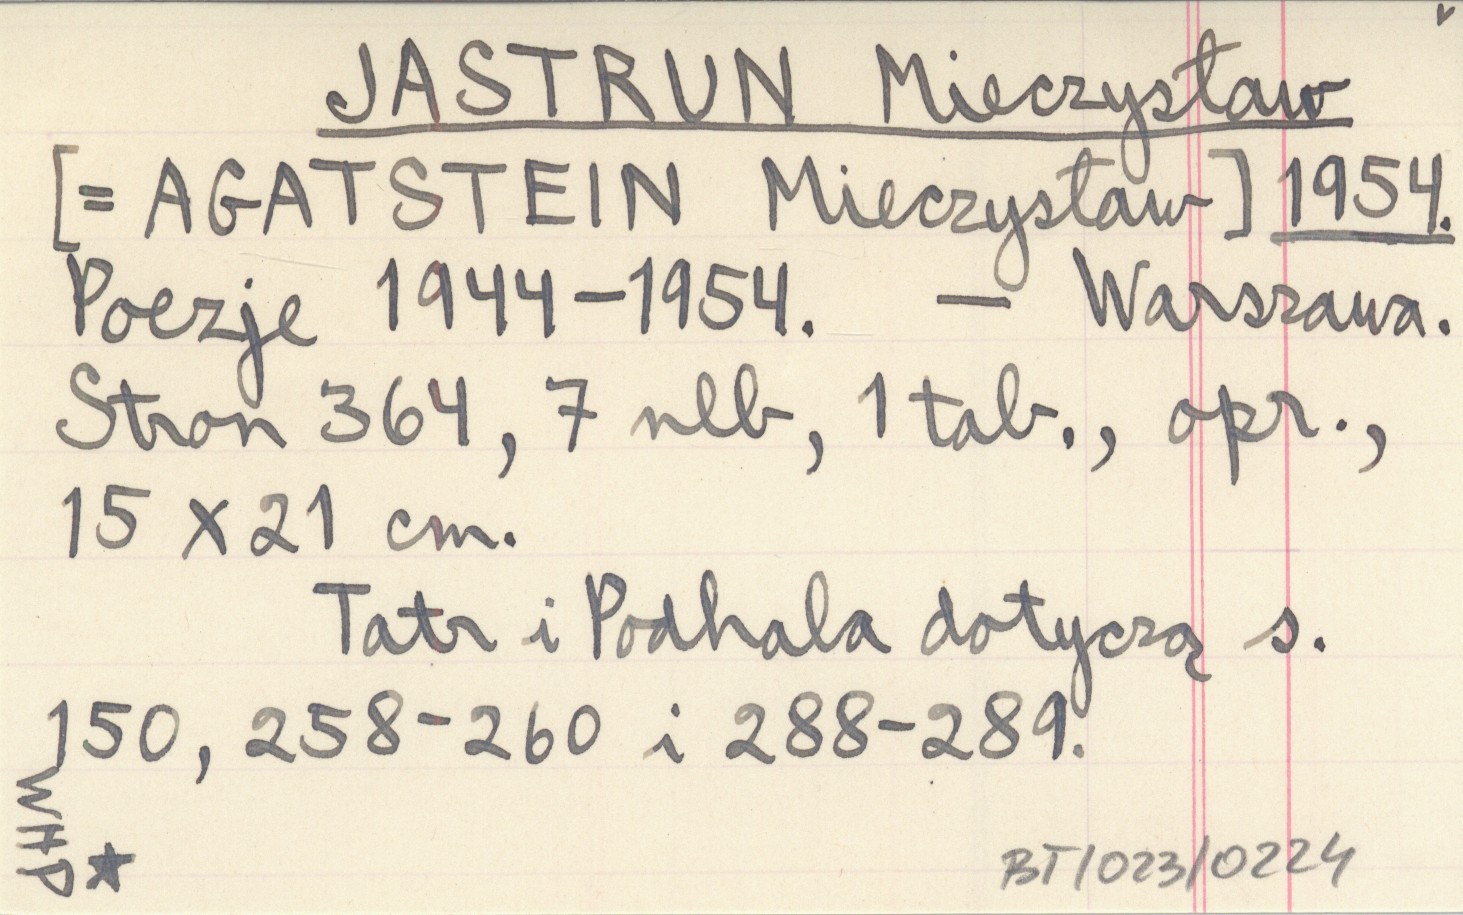 JASTRUN Mieczysław
[= AGATSTEIN Mieczysław] 1954.
Poezje 1944-1954. — Warszawa.
Stron 364, 7 nlb, 1 tab., opr.,
15 x 21 cm.
Tatr i Podhala dotyczą s.
150, 258-260 i 288-289.
WHP
BT/023/0224